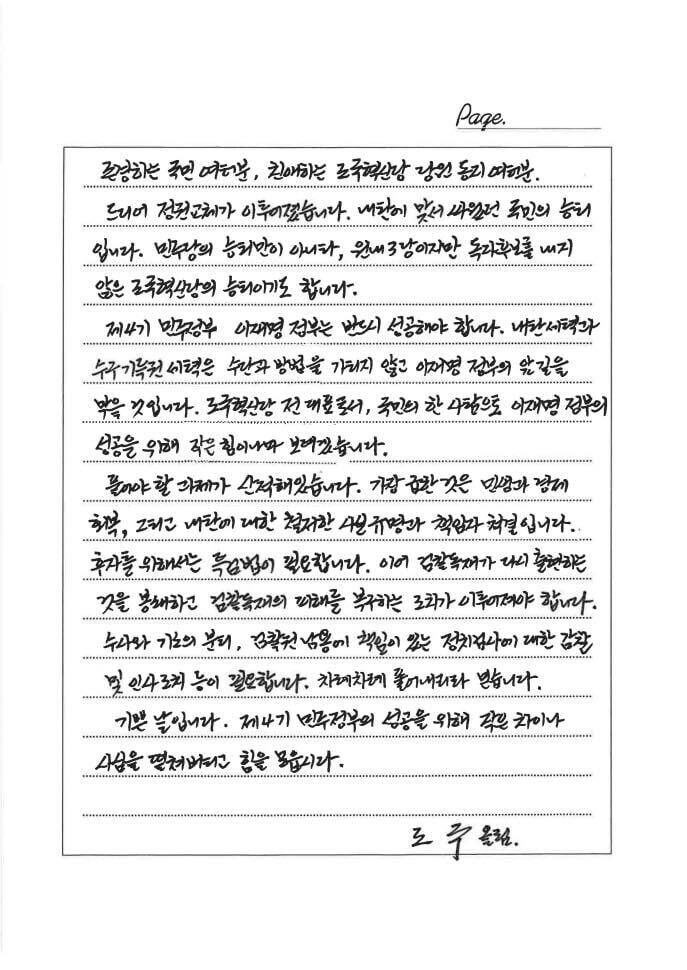 Page.
존경하는 국민 여러분, 친애하는 조국혁신당 당원 동지 여러분.
드디어 정권교체가 이루어졌습니다. 내란에 맞서 싸웠던 국민의 승리
입니다. 민주당의 승리만이 아니라, 원내 3당이지만 독자후보를 내지
않은 조국혁신당의 승리이기도 합니다.
제4기 민주정부 이재명 정부는 반드시 성공해야 합니다. 내란세력과
수구기득권 세력은 수단과 방법을 가리지 않고 이재명 정부의 앞길을
막을 것입니다. 조국혁신당 전 대표로서, 국민의 한 사람으로 이재명 정부의
성공을 위해 작은 힘이나마 보태겠습니다.
풀어야 할 과제가 산적해있습니다. 가장 급한 것은 민생과 경제
회복, 그리고 내란에 대한 철저한 진상규명과 책임자 처벌입니다.
후자를 위해서는 특검법이 필요합니다. 이어 검찰독재가 다시 출현하는
것을 봉쇄하고 검찰독재의 피해를 복구하는 조치가 이루어져야 합니다.
수사와 기소의 분리, 검찰권 남용에 책임이 있는 정치검사에 대한 감찰
및 인사조치 등이 필요합니다. 차례차례 풀어내리라 믿습니다.
기쁜 날입니다. 제4기 민주정부의 성공을 위해 작은 차이나
사심을 떨쳐버리고 힘을 모읍시다.
조 국 올림.